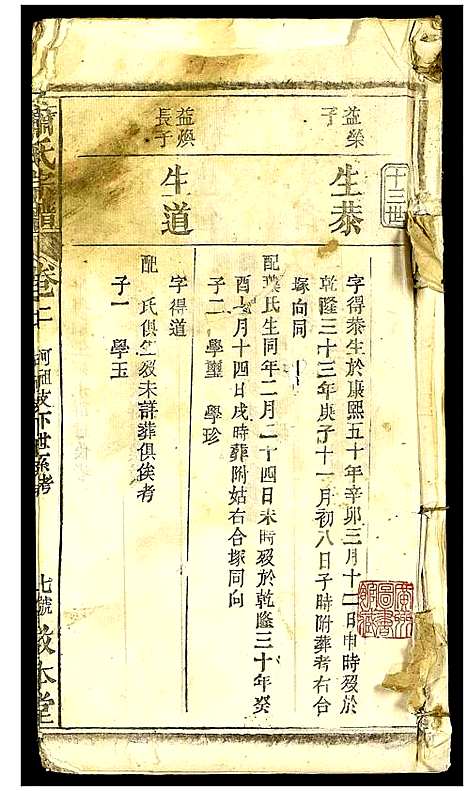 十三世
益榮
子
生恭
字得恭生於康熙五十年辛卯三月十二日申時歿於
乾隆三十三年庚子十一月初八日子時附葬考右合
塚向同
配葉氏生同年二月二十四日未時歿於乾隆三十年癸
酉七月十四日戌時葬附姑右合塚同向
子二 學璽 學珍
益煥
長子
生道
字得道
配 氏俱生歿未詳葬俱俟考
子一 學玉
蕭氏宗譜
卷二
河祖支下世系考
七號
敦本堂
廣州
圖書
館藏